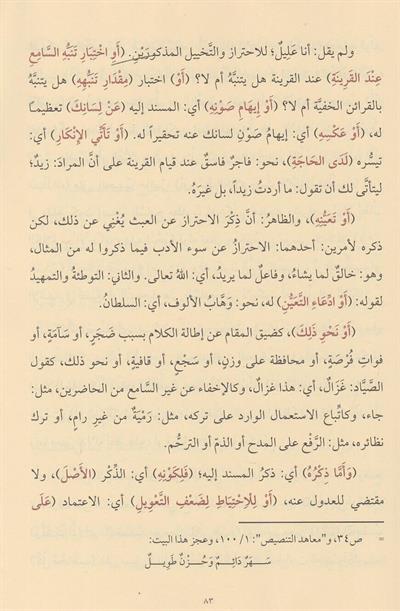 ولم يقل: أنا عَلِيلٌ؛ للاحتراز والتَّخييل المذكورَيْنِ. (أَوِ اخْتِبَارِ تَنَبُّهِ السَّامِعِ
عِنْدَ القَرِينَةِ) عند القرينة هل يتنبَّهُ أم لا؟ (أَوْ) اختبار (مِقْدَارِ تَنَبُّهِهِ) هل يتنبَّهُ
بالقرائن الخفيَّة أم لا؟ (أَوْ إِيهَامِ صَوْنِهِ) أي: المسند إليه (عَنْ لِسَانِكَ) تعظيماً
له، (أَوْ عَكْسِهِ) أي: إيهامُ صَوْنِ لسانك عنه تحقيراً له. (أَوْ تَأَتِّي الإِنْكَارِ) أي:
تيسُّره (لَدَى الحَاجَةِ)، نحو: فاجرٌ فاسقٌ عند قيام القرينة على أنَّ المرادَ: زيدٌ؛
ليتأتَّى لك أن تقول: ما أردتُ زيداً، بل غيرَهُ.
(أَوْ تَعَيُّنِهِ)، والظاهرُ: أنَّ ذِكْرَ الاحتراز عن العبث يُغْنِي عن ذلك، لكن
ذكره لأمرين: أحدهما: الاحترازُ عن سوء الأدب فيما ذكروا له من المثال،
وهو: خالقٌ لما يشاءُ، وفاعلٌ لما يريدُ، أي: اللهُ تعالى. والثاني: التوطئةُ والتمهيدُ
لقوله: (أَوْ ادِّعَاءِ التَّعَيُّنِ) له، نحو: وَهَّابُ الألوف، أي: السلطانُ.
(أَوْ نَحْوِ ذَلِكَ)، كضيق المقام عن إطالة الكلام بسبب ضَجَرٍ، أو سَآمَةٍ، أو
فواتِ فُرْصَةٍ، أو محافظة على وزنٍ، أو سَجْعٍ، أو قافيةٍ، أو نحو ذلك، كقول
الصَّيَّادِ: غَزَالٌ، أي: هذا غزالٌ، وكالإخفاء عن غير السَّامع من الحاضرين، مثل:
جاء، وكاتِّباع الاستعمال الوارد على تركه، مثل: رَمْيَةٌ من غيرِ رامٍ، أو ترك
نظائره، مثل: الرَّفْع على المدح أو الذمّ أو الترحُّم.
(وَأَمَّا ذِكْرُهُ) أي: ذكرُ المسند إليه؛ (فَلِكَوْنِهِ) أي: الذِّكْر (الأَصْلَ)، ولا
مقتضي للعدول عنه، (أَوْ لِلِاحْتِيَاطِ لِضَعْفِ التَّعْوِيلِ) أي: الاعتماد (عَلَى
= ص٣٤، و"معاهد التنصيص": ١/ ١٠٠، وعجز هذا البيت:
سَهَرٌ دَائِمٌ وَحُزْنٌ طَوِيلٌ
٨٣